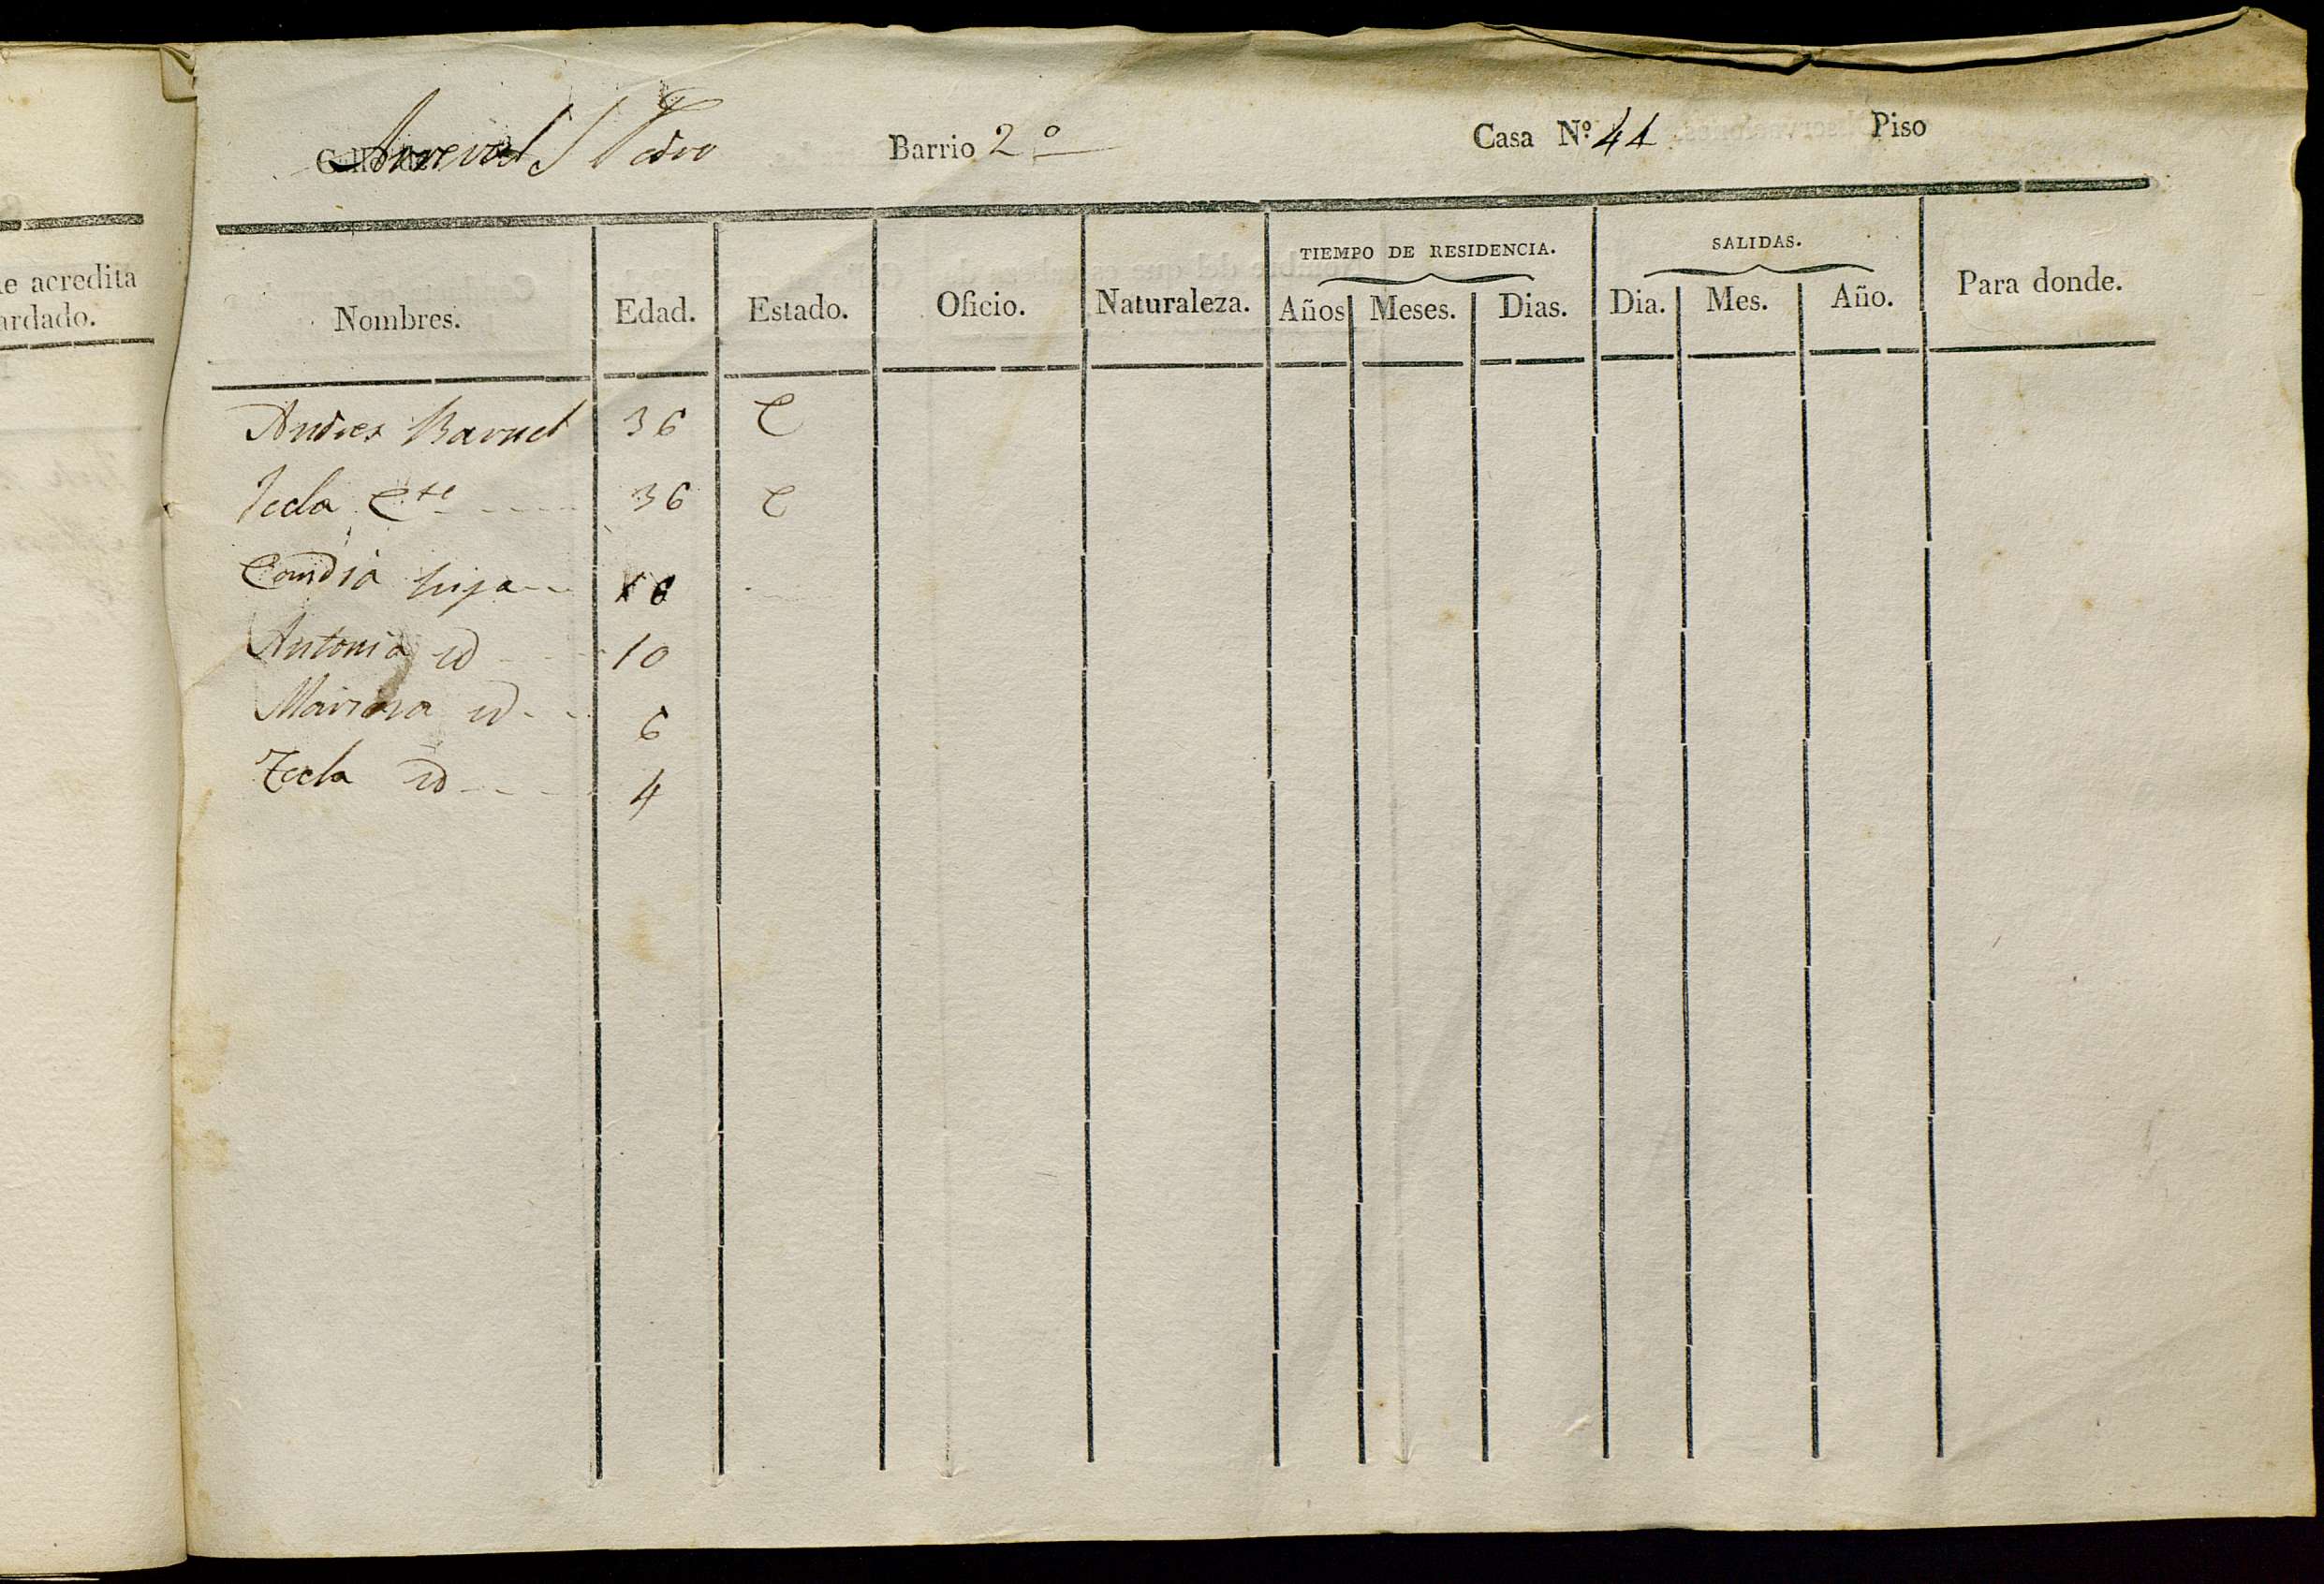 e acredita
ardado.
Arreval S Pedro Barrio 2º Casa Nº 44 Piso
TIEMPO DE RESIDENCIA. SALIDAS.
Nombres. Edad. Estado. Oficio. Naturaleza. Años Meses. Dias. Dia. Mes. Año. Para donde.
Andres Baruel 36 C
Tecla Cte 36 C
hija
Antonia id 10
id 6
Tecla id 4